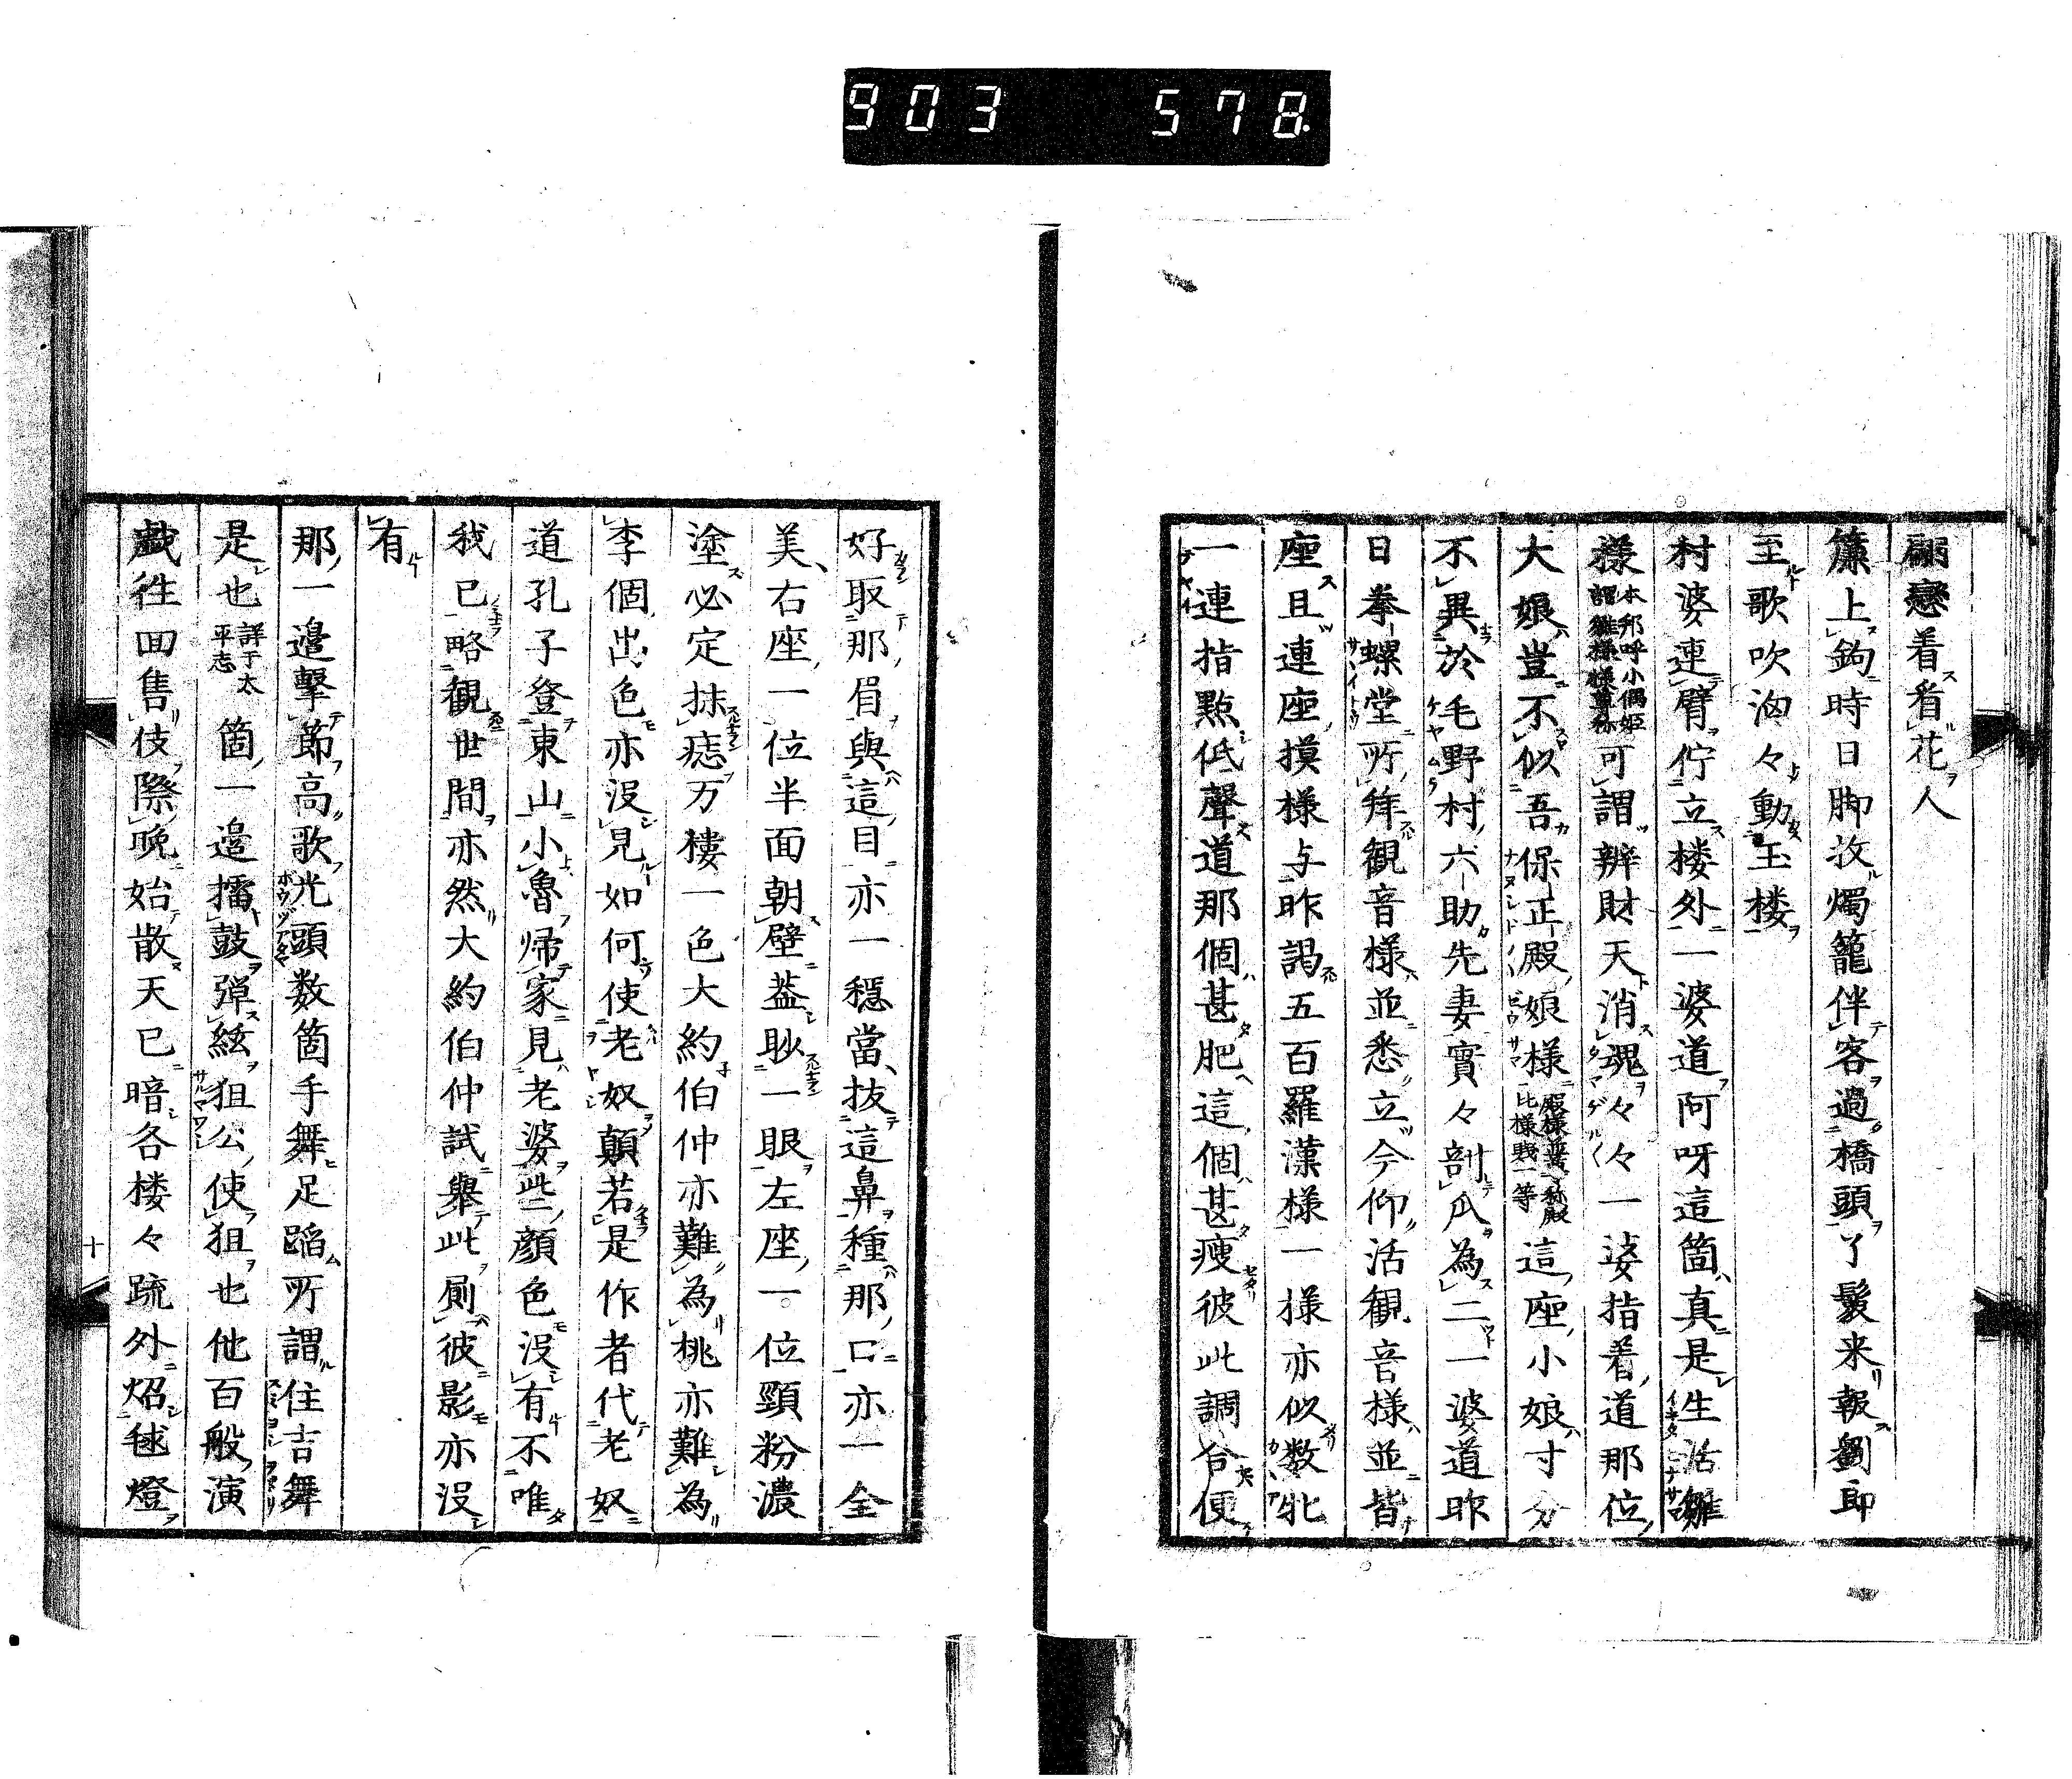 903 578
翩戀着看花人
簾上鉤時日脚放燭籠伴客過橋頭了鬟来報劉郎
至歌吹洶々動玉楼
村婆連臂佇立楼外一婆道阿呀這箇真是生活雛
様本邦呼小偶姫謂雛様様尊称可謂辨財天消魂々々一婆指着道那位
大娘豈不似吾保正殿娘様這座小娘寸分
不異於毛野村六助先妻實々剖瓜為二一婆道昨
日拳螺堂所拜観音様並悉立今仰活観音様並皆
座且連座摸様与昨謁五百羅漢様一様亦似数牝
一連指點低聲道那個甚肥這個甚瘦彼此調合便
好取那眉與這目亦一穏當抜這鼻種那口亦一全
美右座一位半面朝壁葢眇一眼左座一位頸粉濃
塗必定抹痣万樓一色大約伯仲亦難為桃亦難為
李個出色亦没見如何使老奴顛若是作者代老奴
道孔子登東山小魯帰家見老婆些顔色没有不唯
我已略観世間亦然大約伯仲試舉此厠彼影亦没
有
那一邉擊節高歌光頭数箇手舞足蹈所謂住吉舞
是也詳于太平志箇一邉擂鼓弾絃狙公使狙也他百般演
戯徃回售伎際晚始散天已暗各楼々疏外炤毬燈
十